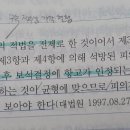 의 적법을 전제로 한 것이어서 제3
제3항과 제4항에 의해 석방된 피
후 보석결정에 항고가 인정되는
하는 것이 균형에 맞으므로/ 피의
보아야 한다(대법원 1997.08.27